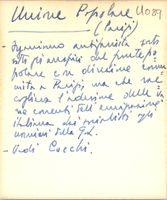 Unione Popolare U089
(Parigi)
- Organismo antifascista sorto
sotto gli auspici del fronte po-
polare con direzione comu-
nista a Parigi, ma che rac-
coglieva l'adesione delle va-
rie correnti dell'emigrazione
italiana dai socialisti agli
uomini della G.L.
- Vedi Cocchi.